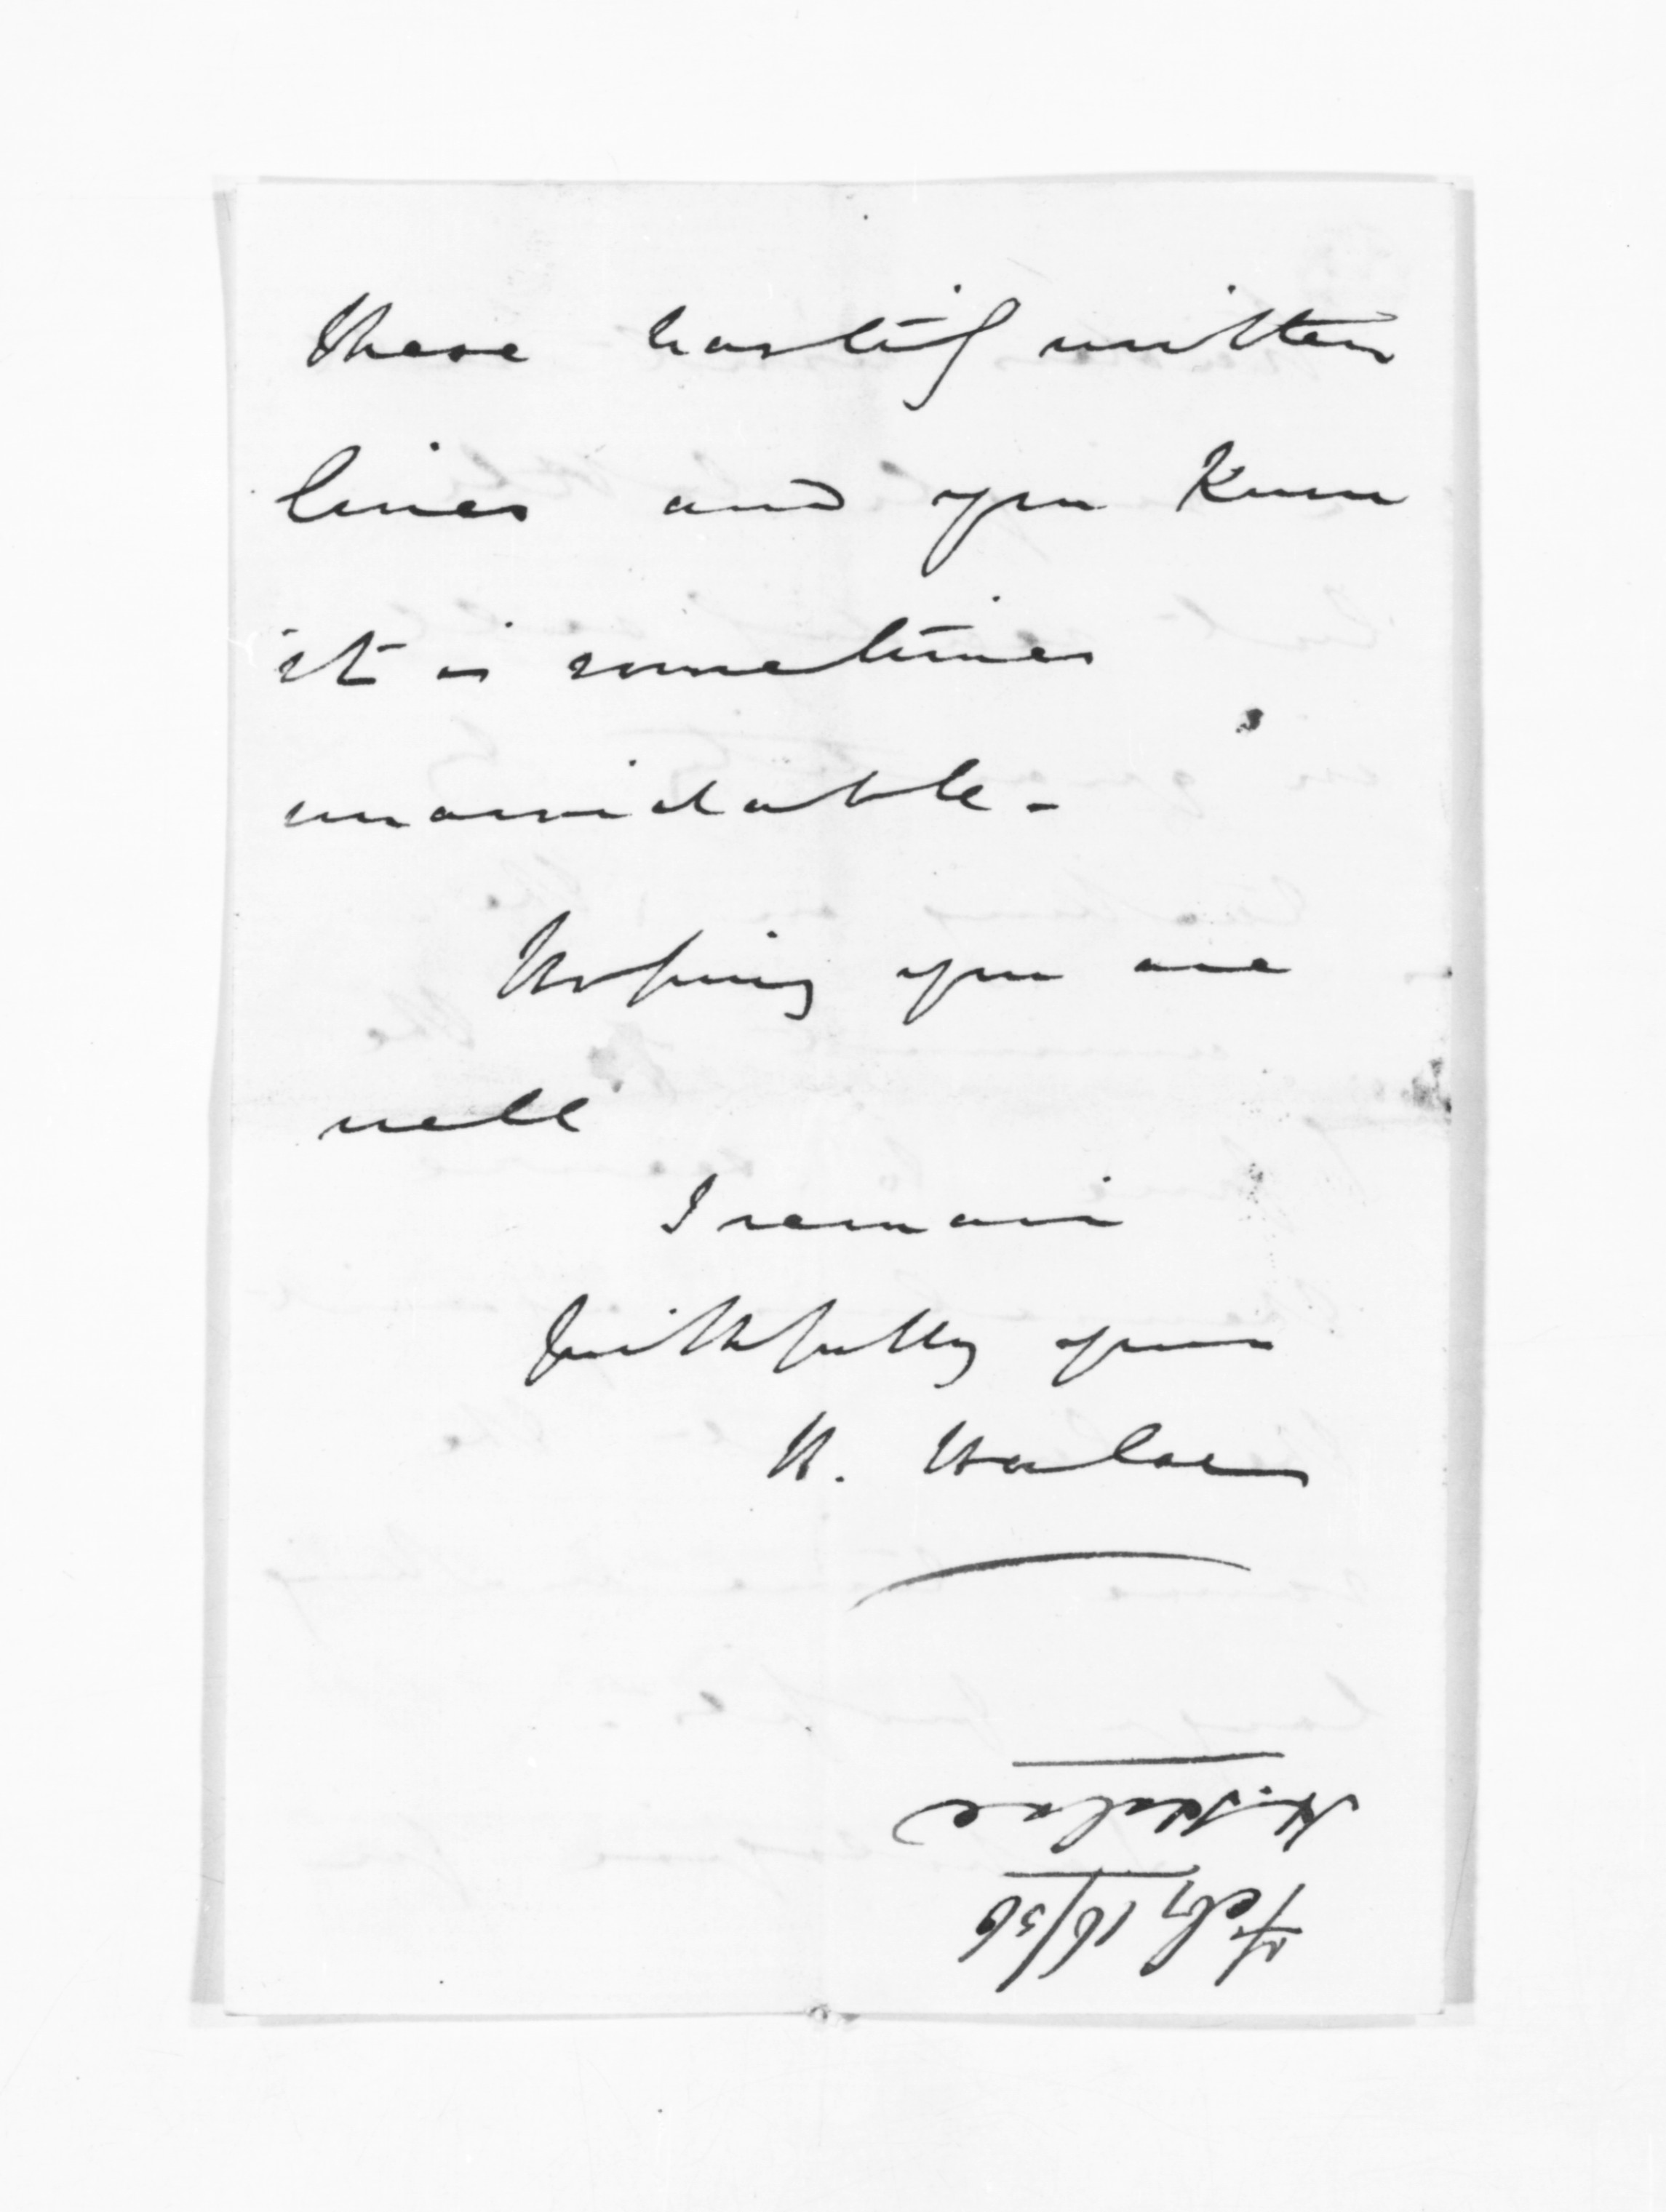 these hastily written
lines and you know
it is sometimes
unavoidable -
Hoping you are
well
I remain
faithfully yours
H. Halse
H. Halse
Feby 16/56